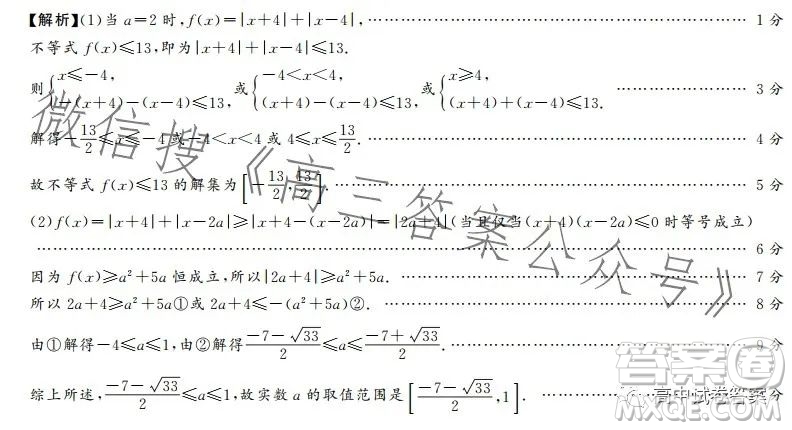 【解析】(1)当 a=2 时,f(x)=|x+4|+|x-4|, …… 1 分
不等式 f(x)≤13,即为|x+4|+|x-4|≤13.
则{x≤-4, -(x+4)-(x-4)≤13, 或{-4<x<4, (x+4)-(x-4)≤13, 或{x≥4, (x+4)+(x-4)≤13. …… 3 分
解得-13/2≤x≤-4 或-4<x<4 或 4≤x≤13/2. …… 4 分
故不等式 f(x)≤13 的解集为[-13/2, 13/2]. …… 5 分
(2)f(x)=|x+4|+|x-2a|≥|x+4-(x-2a)|=|2a+4|(当且仅当(x+4)(x-2a)≤0 时等号成立)
…… 6 分
因为 f(x)≥a²+5a 恒成立,所以|2a+4|≥a²+5a. …… 7 分
所以 2a+4≥a²+5a①或 2a+4≤-(a²+5a)②. …… 8 分
由①解得-4≤a≤1,由②解得(-7-√33)/2≤a≤(-7+√33)/2. …… 9 分
综上所述,(-7-√33)/2≤a≤1,故实数 a 的取值范围是[(-7-√33)/2,1]. …… 分
微信搜《高三答案公众号》
答案卷
高中试卷答案
MXQE.COM